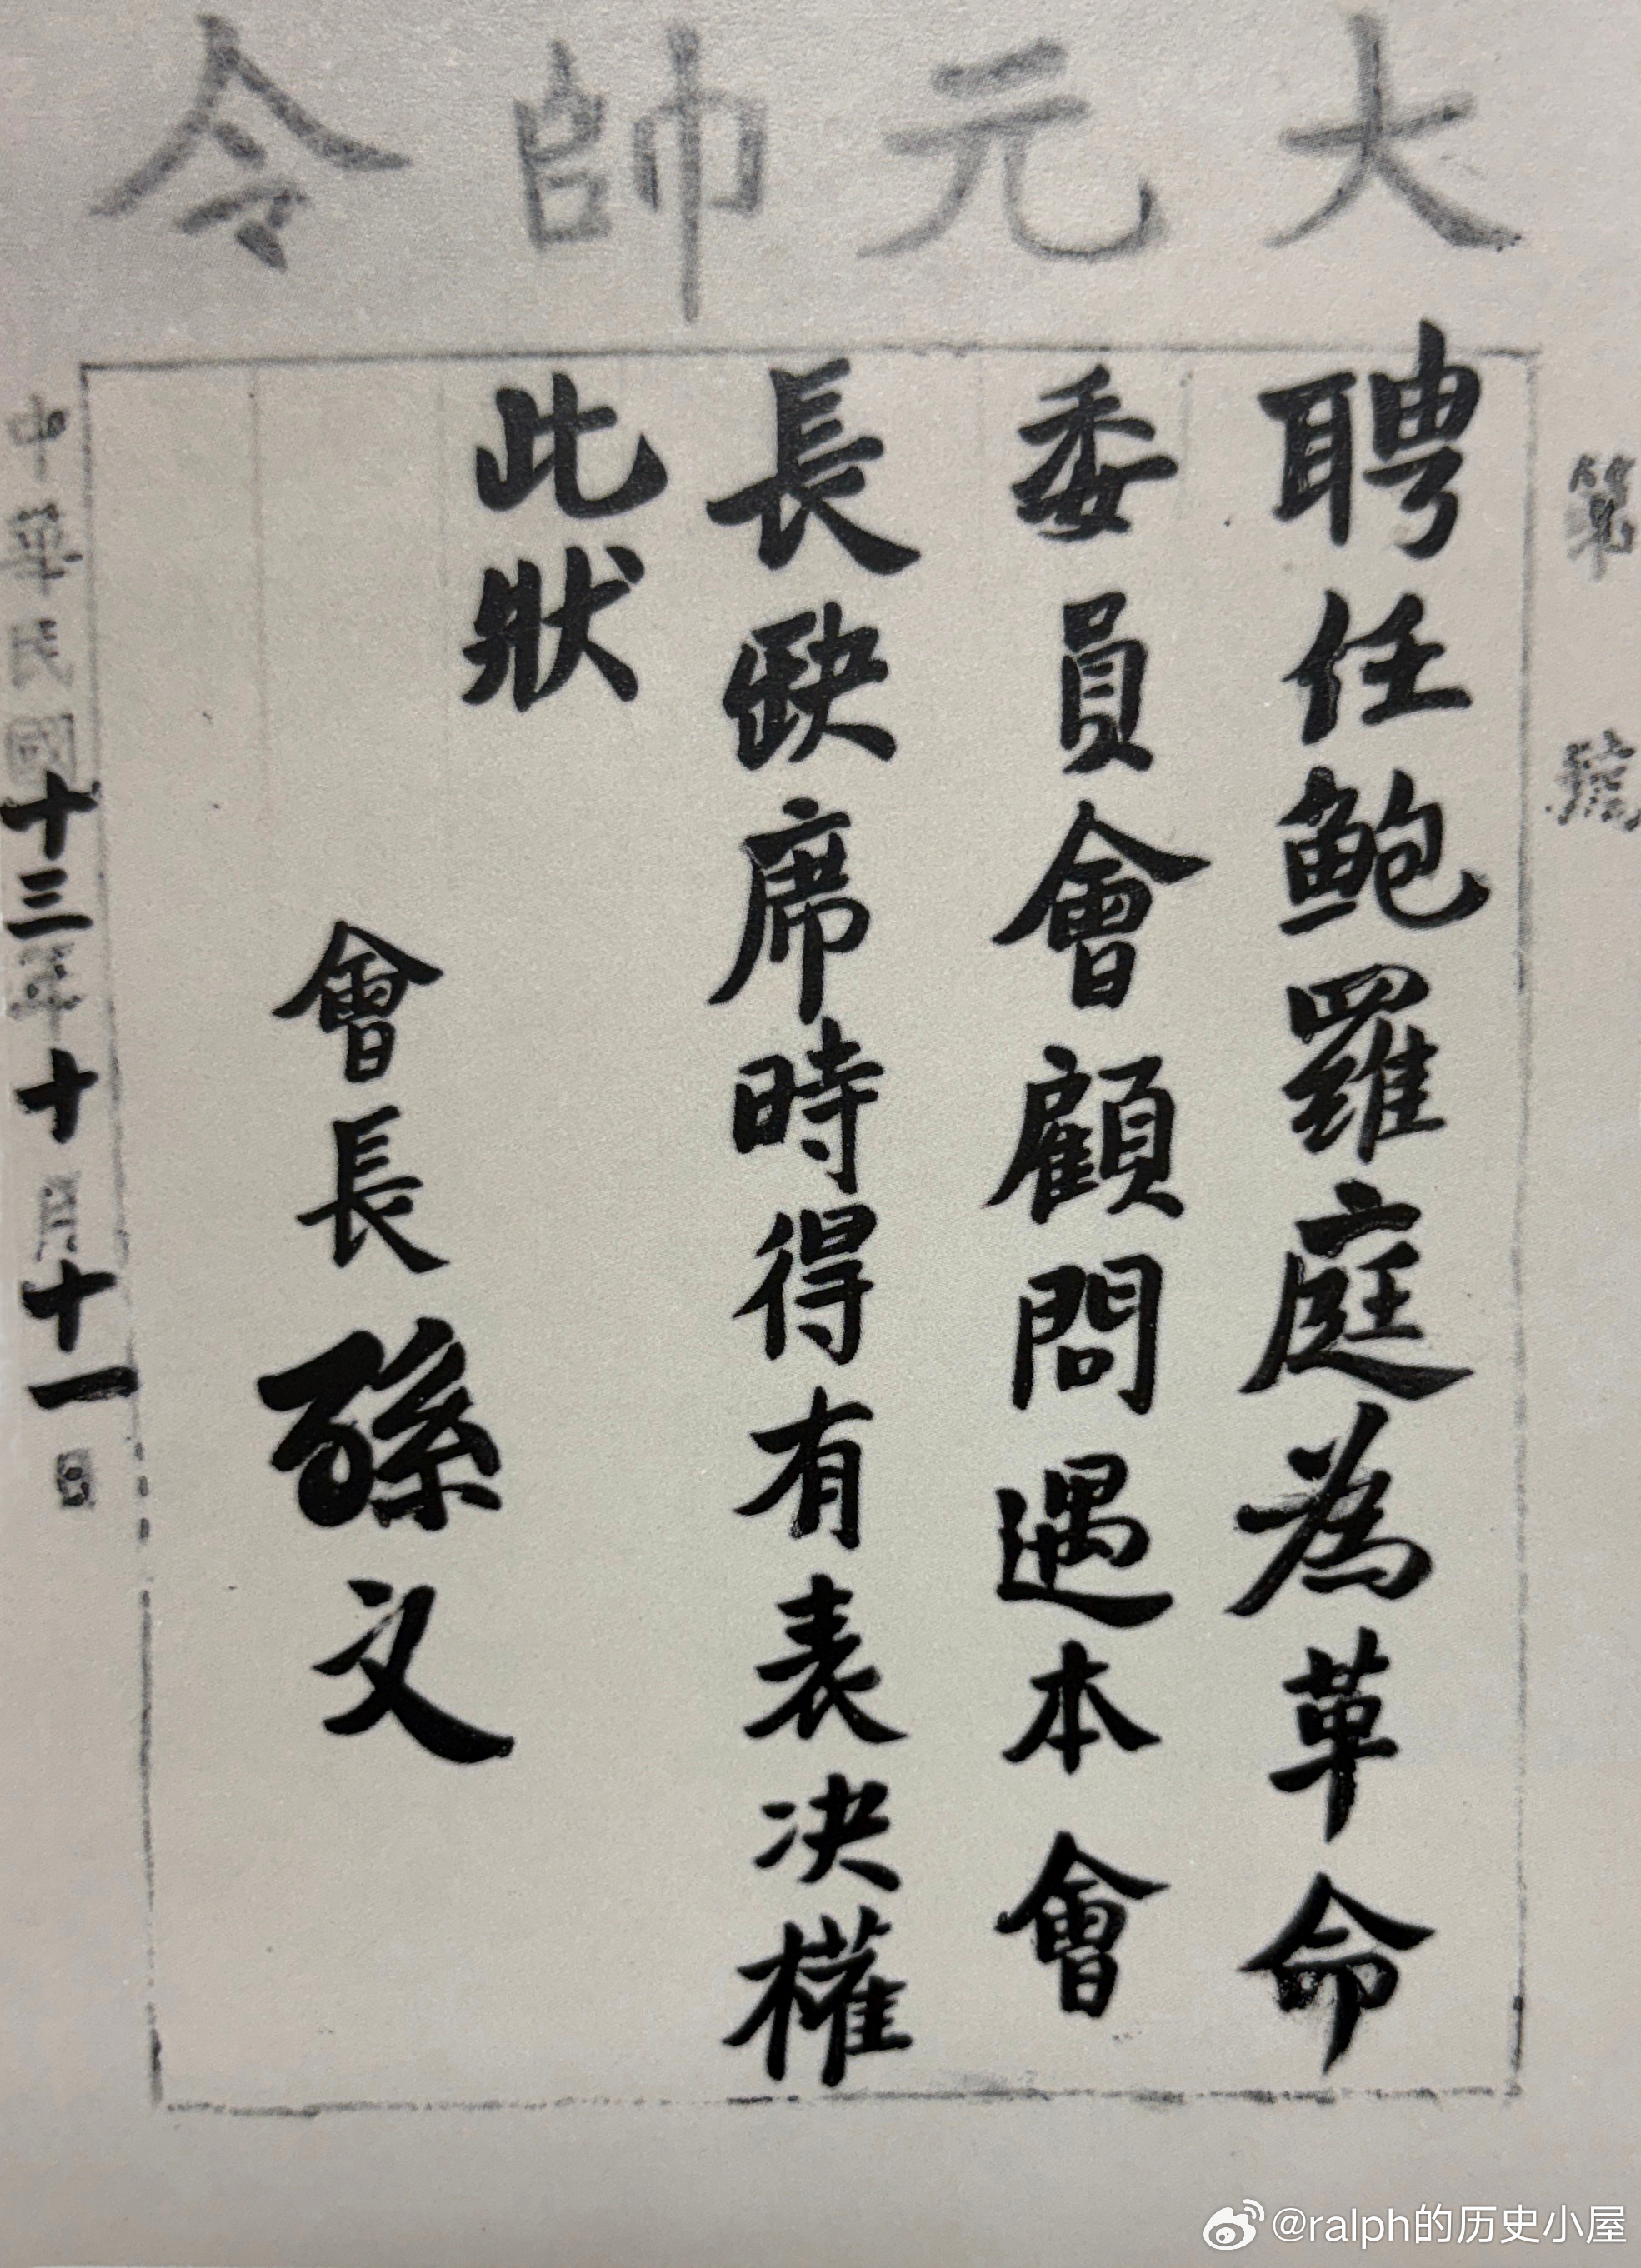 大元帥令
第 號
聘任鮑羅庭為革命
委員會顧問遇本會
長缺席時得有表决權
此狀
會長孫文
中華民國十三年十月十一日
@ralph的历史小屋